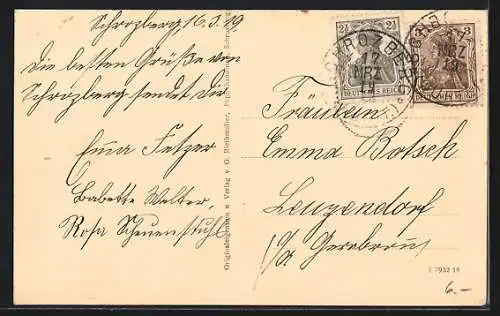 Schrozberg 16.3.19
Die besten Grüße von
Schrozberg sendet Dir
Emma Fetzer
Babette Walter,
Rosa Scheuenstuhl
Originalaufnahme u. Verlag v. G. Riethmüller,
2½
2½
DEUTSCHES REICH
3
DEUTSCHES REICH
SCHROZBERG
17
MRZ
19
Fräulein
Emma Botsch
Leuzendorf
Gerabronn
1 7932 18
6.–